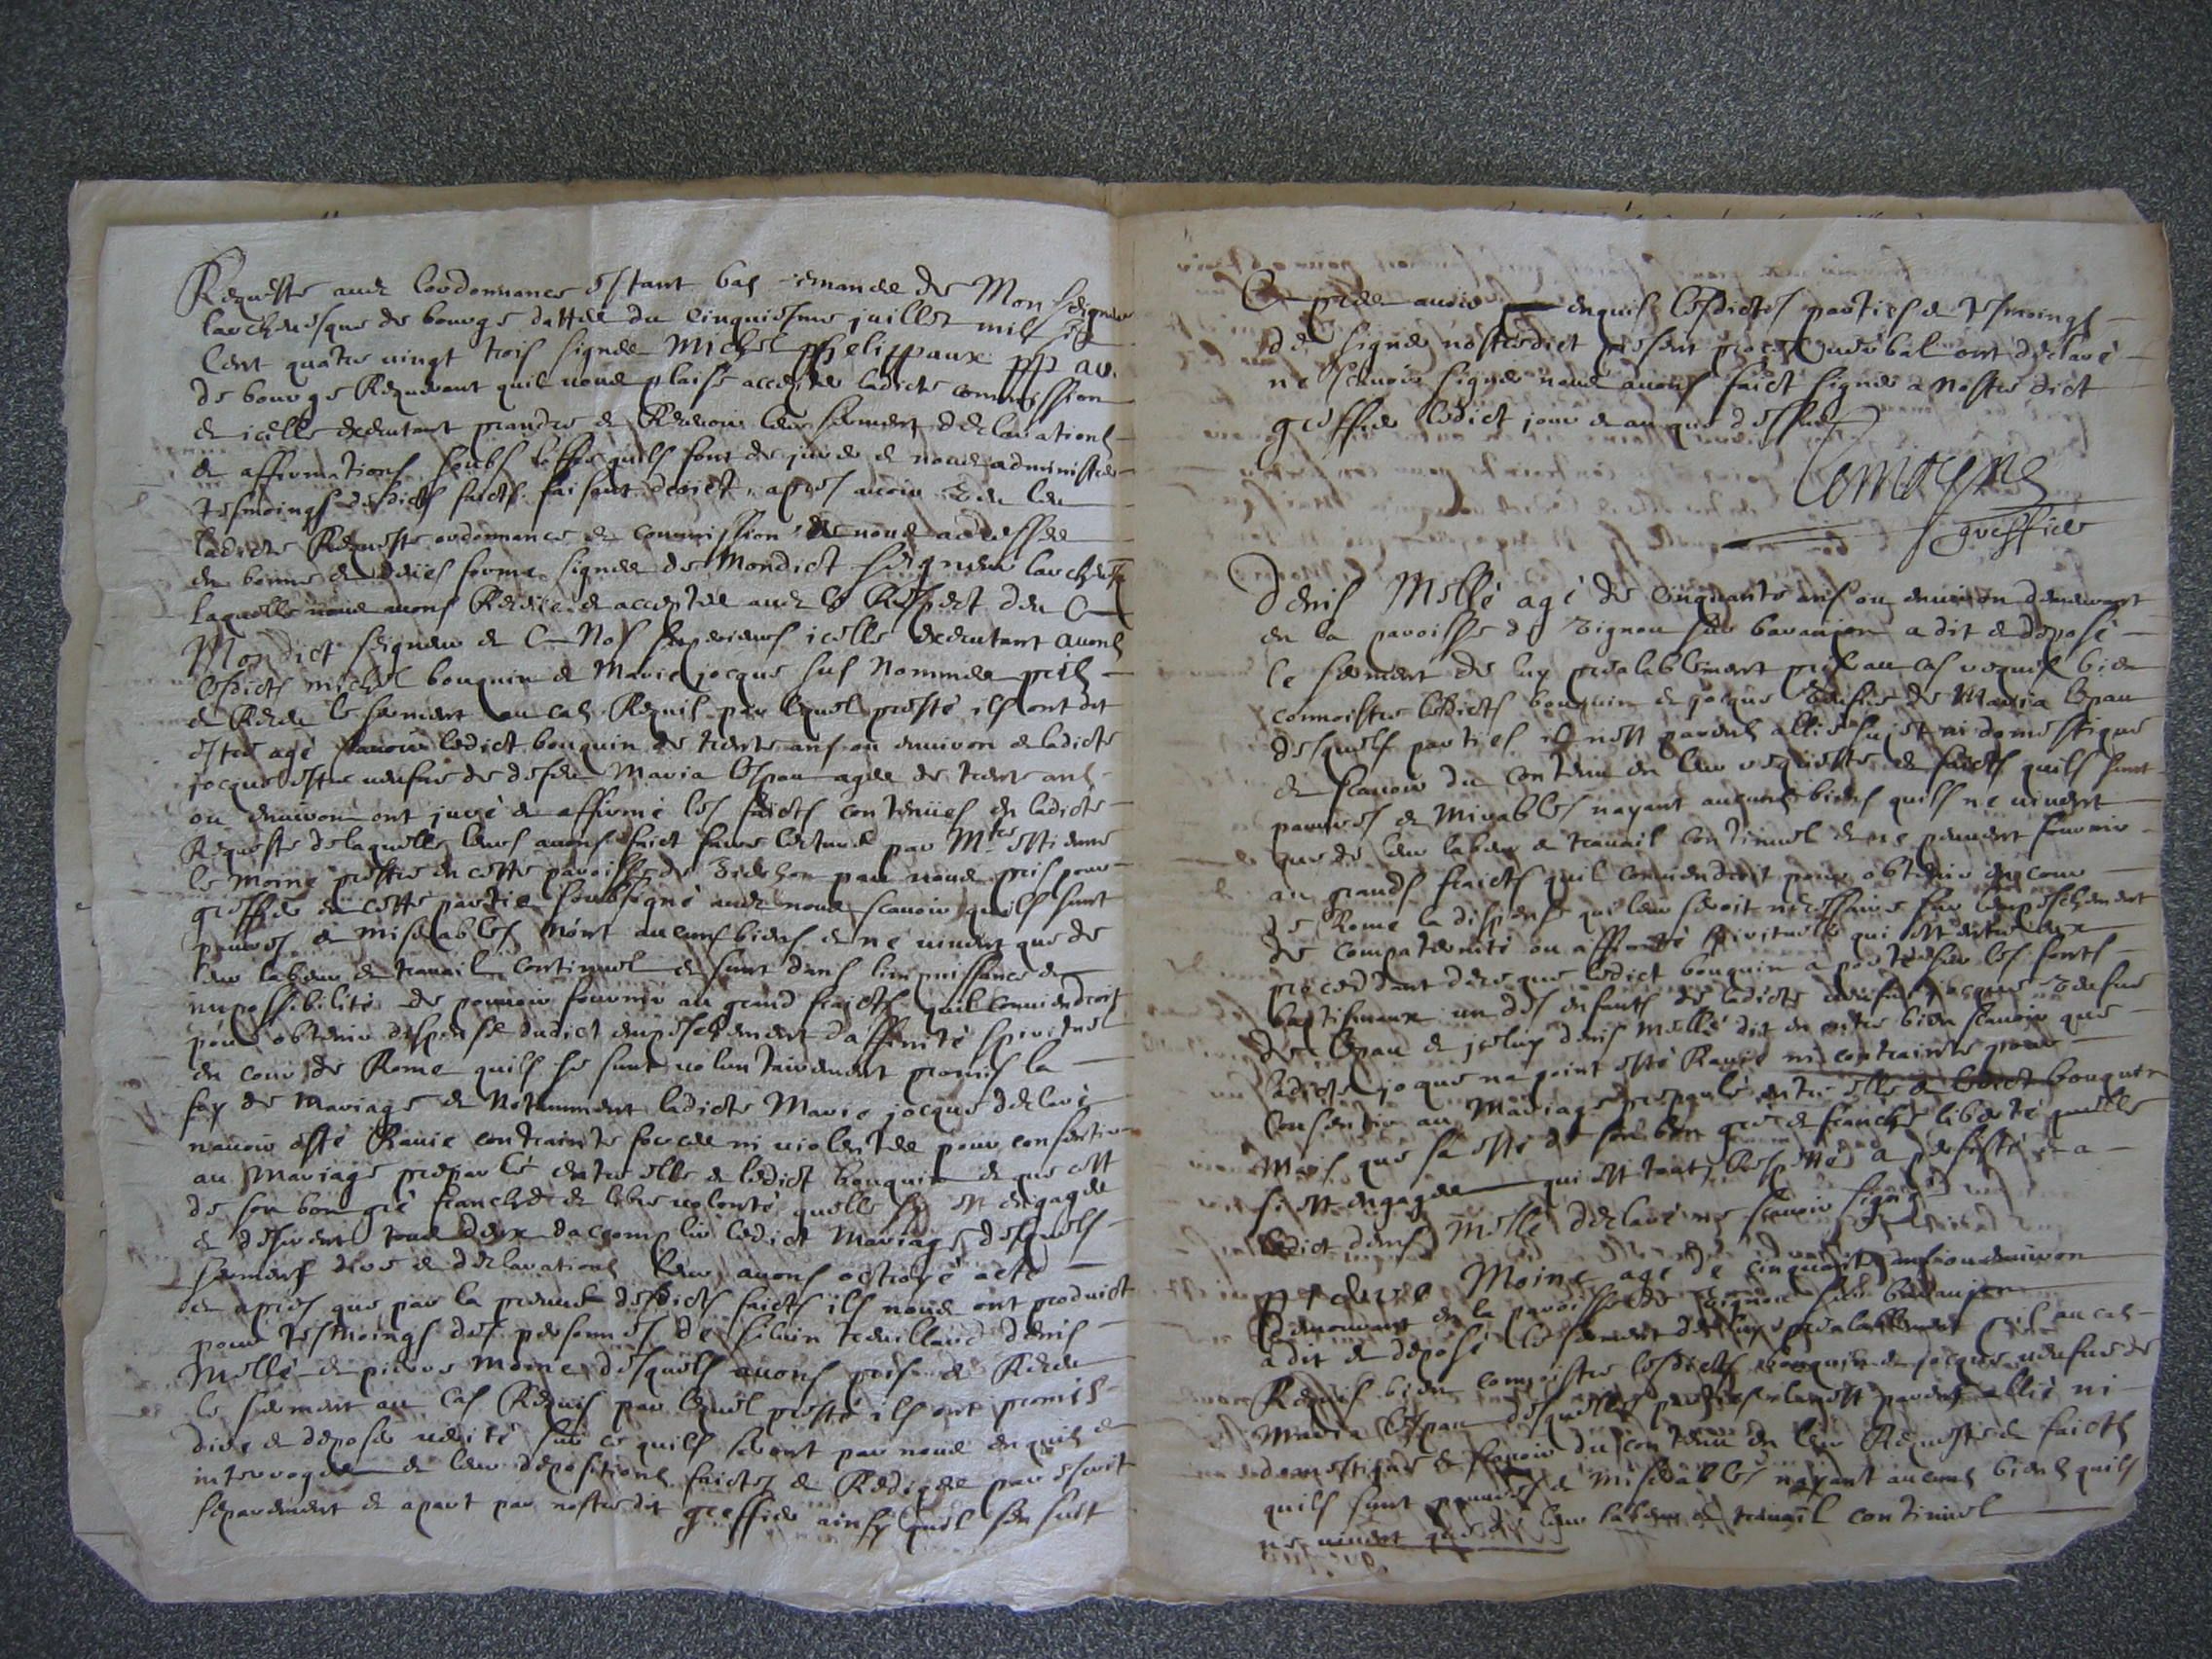 Requeste avec lordonnance estant bas emanee de Monseigneur
larchevesque de bourge dattee du cinquiesme juillet mil six
cent quatre vingt trois signee Michel phelippaux ppp ar.
de bourge Requerant quil nous plaise accepter ladicte commission
et icelle executant prandre et Recevoir leur serment declarations
et affirmations soubs loffre quils font de jurer et nous administrer
tesmoings desdicts faicts faisant droict apres avoir veu leu
ladicte Requeste ordonnance et commission a nous adressee
en bonne et deue forme signee de Mondict seigneur larchevesq
laquelle nous avons Receue et acceptee avec le Respect deu a
Mondict seigneur et a Nos superieurs icelle executant avons
lesdicts michel bouquin et Marie jocque sus Nommee pris
et Receu le serment au cas Requis par lequel presté ils ont dit
estre agé scavoir ledict bouquin de trente ans ou environ et ladicte
jocque estre veufve de defeu Maria lespau agee de trente ans
ou environ ont juré et affirmé les faicts contenues en ladicte
Requeste de laquelle leurs avons faict faire lecture par Mre estienne
le moine prestre en cette paroisse de par nous pris pour
greffier en cette partie soubsigné avec nous scavoir quils sunt
pauvres et miserables n'ont aucuns biens et ne vivent que de
leur labeur et travail continuel et sunt dans limpuissance et
impossibilité de pouvoir fournir au grand fraicts quil conviendroit
pour obtenir dispense dudict empeschement daffinité spirituel
en cour de Rome quils se sunt volontairement promis la
foy de mariage et Notamment ladicte Marie jocque declaré
navoir esté Ravie contrainte forcee ni violentee pour consentir
au Mariage préparlé entre elle et ledict bouquin et que cest
de son bon gré franche et libre volonté quelle sy est engagee
et desirent tous deux daccomplir ledict Mariage desquels
serment dire et declarations leur avons octroyé acte
et apres que par la preuve desdicts faicts ils nous ont produict
pour tesmoings des personnes de silvin trevillaud denis
mellé et pierre moine desquels avons prise et Receu
le serment au cas Requis par lequel presté ils ont promis
dire et deposer verité sur ce quils seront par nous enquis et
interrogee et leur depositions faictes et Redigee par escrit
separement et apart par nostredit greffier ainsy quil sen suit
Ce procé enquis lesdictes parties et tesmoings
de signer nostredict present procex verbal ont declaré
ne scavoir signer nous avons faict signer a Nostre dict
greffier ledict jour et an que dessus
Lemoyne
greffier
Denis Mellé agé de cinquante ans ou environ demeurant
en la paroisse de vignou sur baranjon a dit et deposé
le serment de luy prealablement pris au cas requis bien
connoistre lesdicts bouquin et jocque veufve de Maria lepau
desquels parties il nest parent allié sujet ni domestique
et scavoir du contenu en leur requeste et faicts quils sunt
pauvres et mirables nayant aucuns biens quils ne vivent
que de leur labeur et travail continuel et ne peuvent fournir
au grands fraicts quil conviendroit pour obtenir en cour
de Rome la dispense qui leur seroit necessaire sur lempeschement
de compaternité ou affinité spirituelle qui est entre eux
procedant de ce que ledict bouquin a porté sur les fonts
baptismaux un des enfants de ladicte jocque veufve
de lepau et iceluy denis mellé dit en outre bien scavoir que
ladicte jocque na point esté Ravie ni contrainte pour
consentir au Mariage préparlé entre elle et ledict bouquin
mais que sa esté de son bon gré et franche liberté quelle
si est engagee qui est tout Respetté a persisté et a
ledict denis Mellé declaré ne scavoir signé
pierre Moine agé de cinquante ans ou environ
demeurant en la paroisse de vignou sur baranjon
a dit et deposé le serment de luy prealablement pris au cas
Requis bien connoistre lesdicts bouquin et jocque veufve de
Maria lespau desquelles parties il nest parent allié ni
domestique et scavoir du contenu en leur Requeste et faicts
quils sunt pauvres et miserables nayant aucuns biens quils
ne vivent que de leur labeur et travail continuel